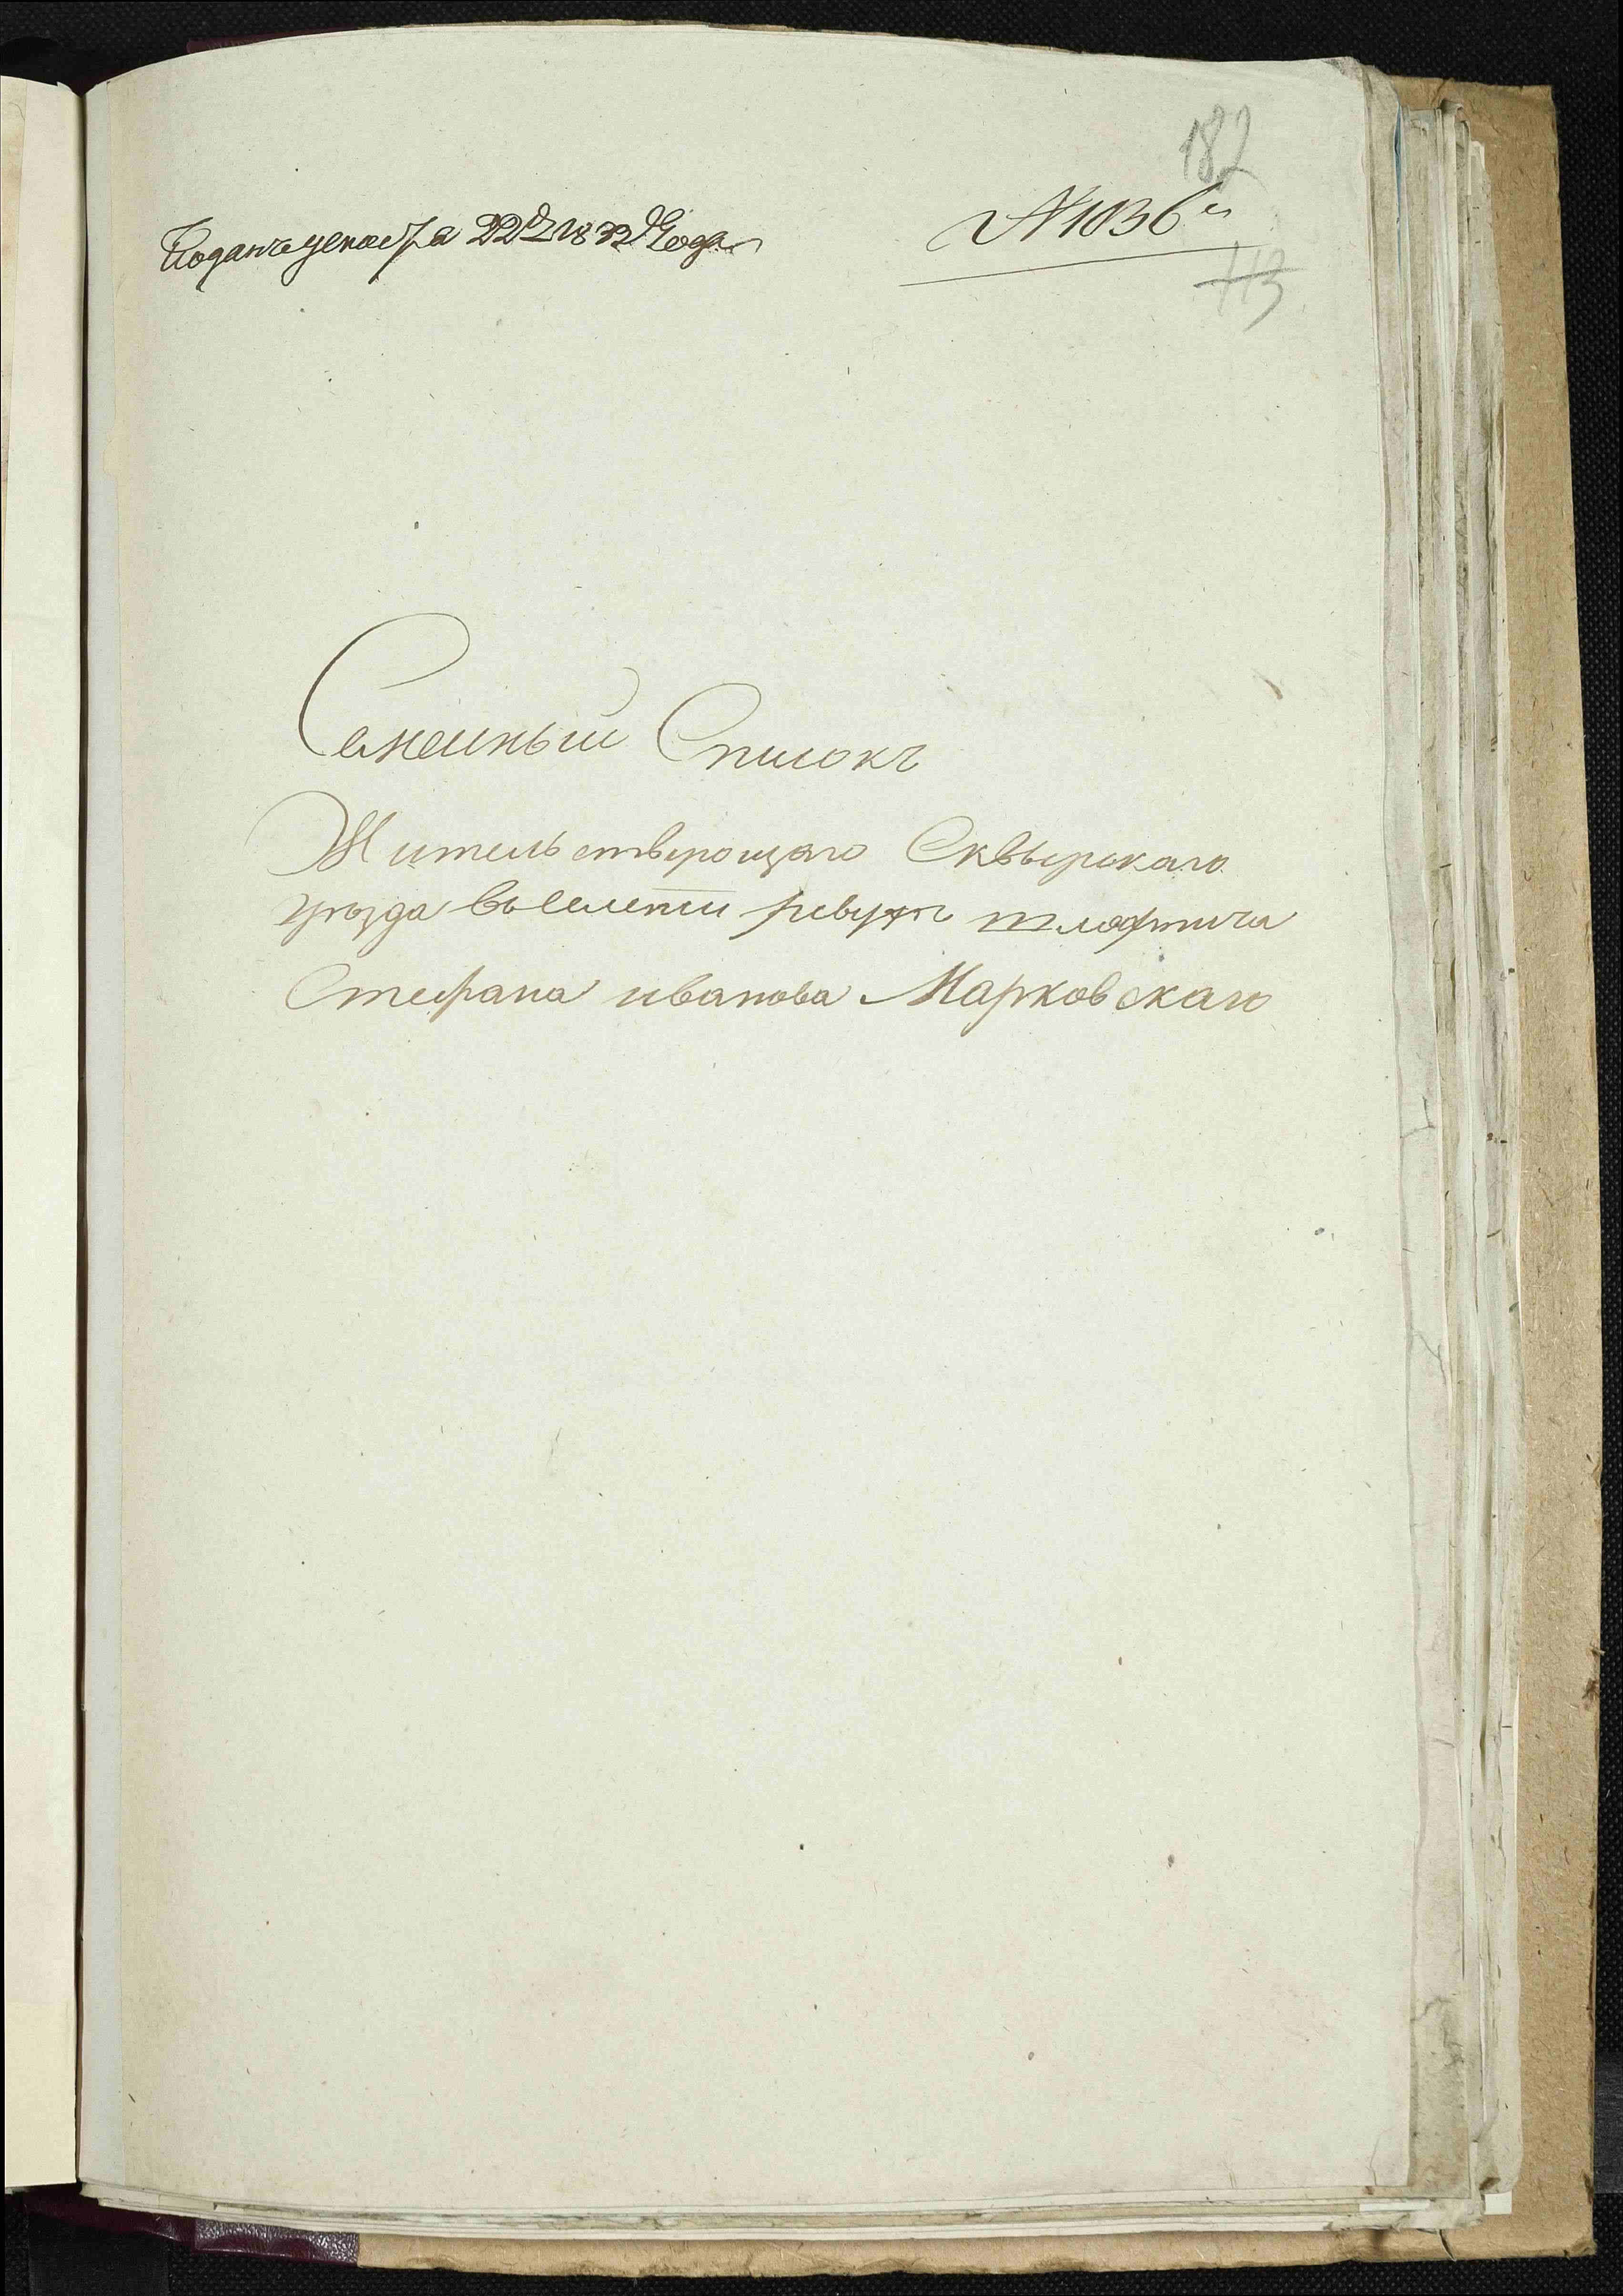 182
Поданъ декабря 22 д 1832 Года
№ 1036й
113
Семейный Списокъ
Жительствующаго Сквырскаго
уѣзда въ селенiи шляхтича
Стефана иванова Марковскаго